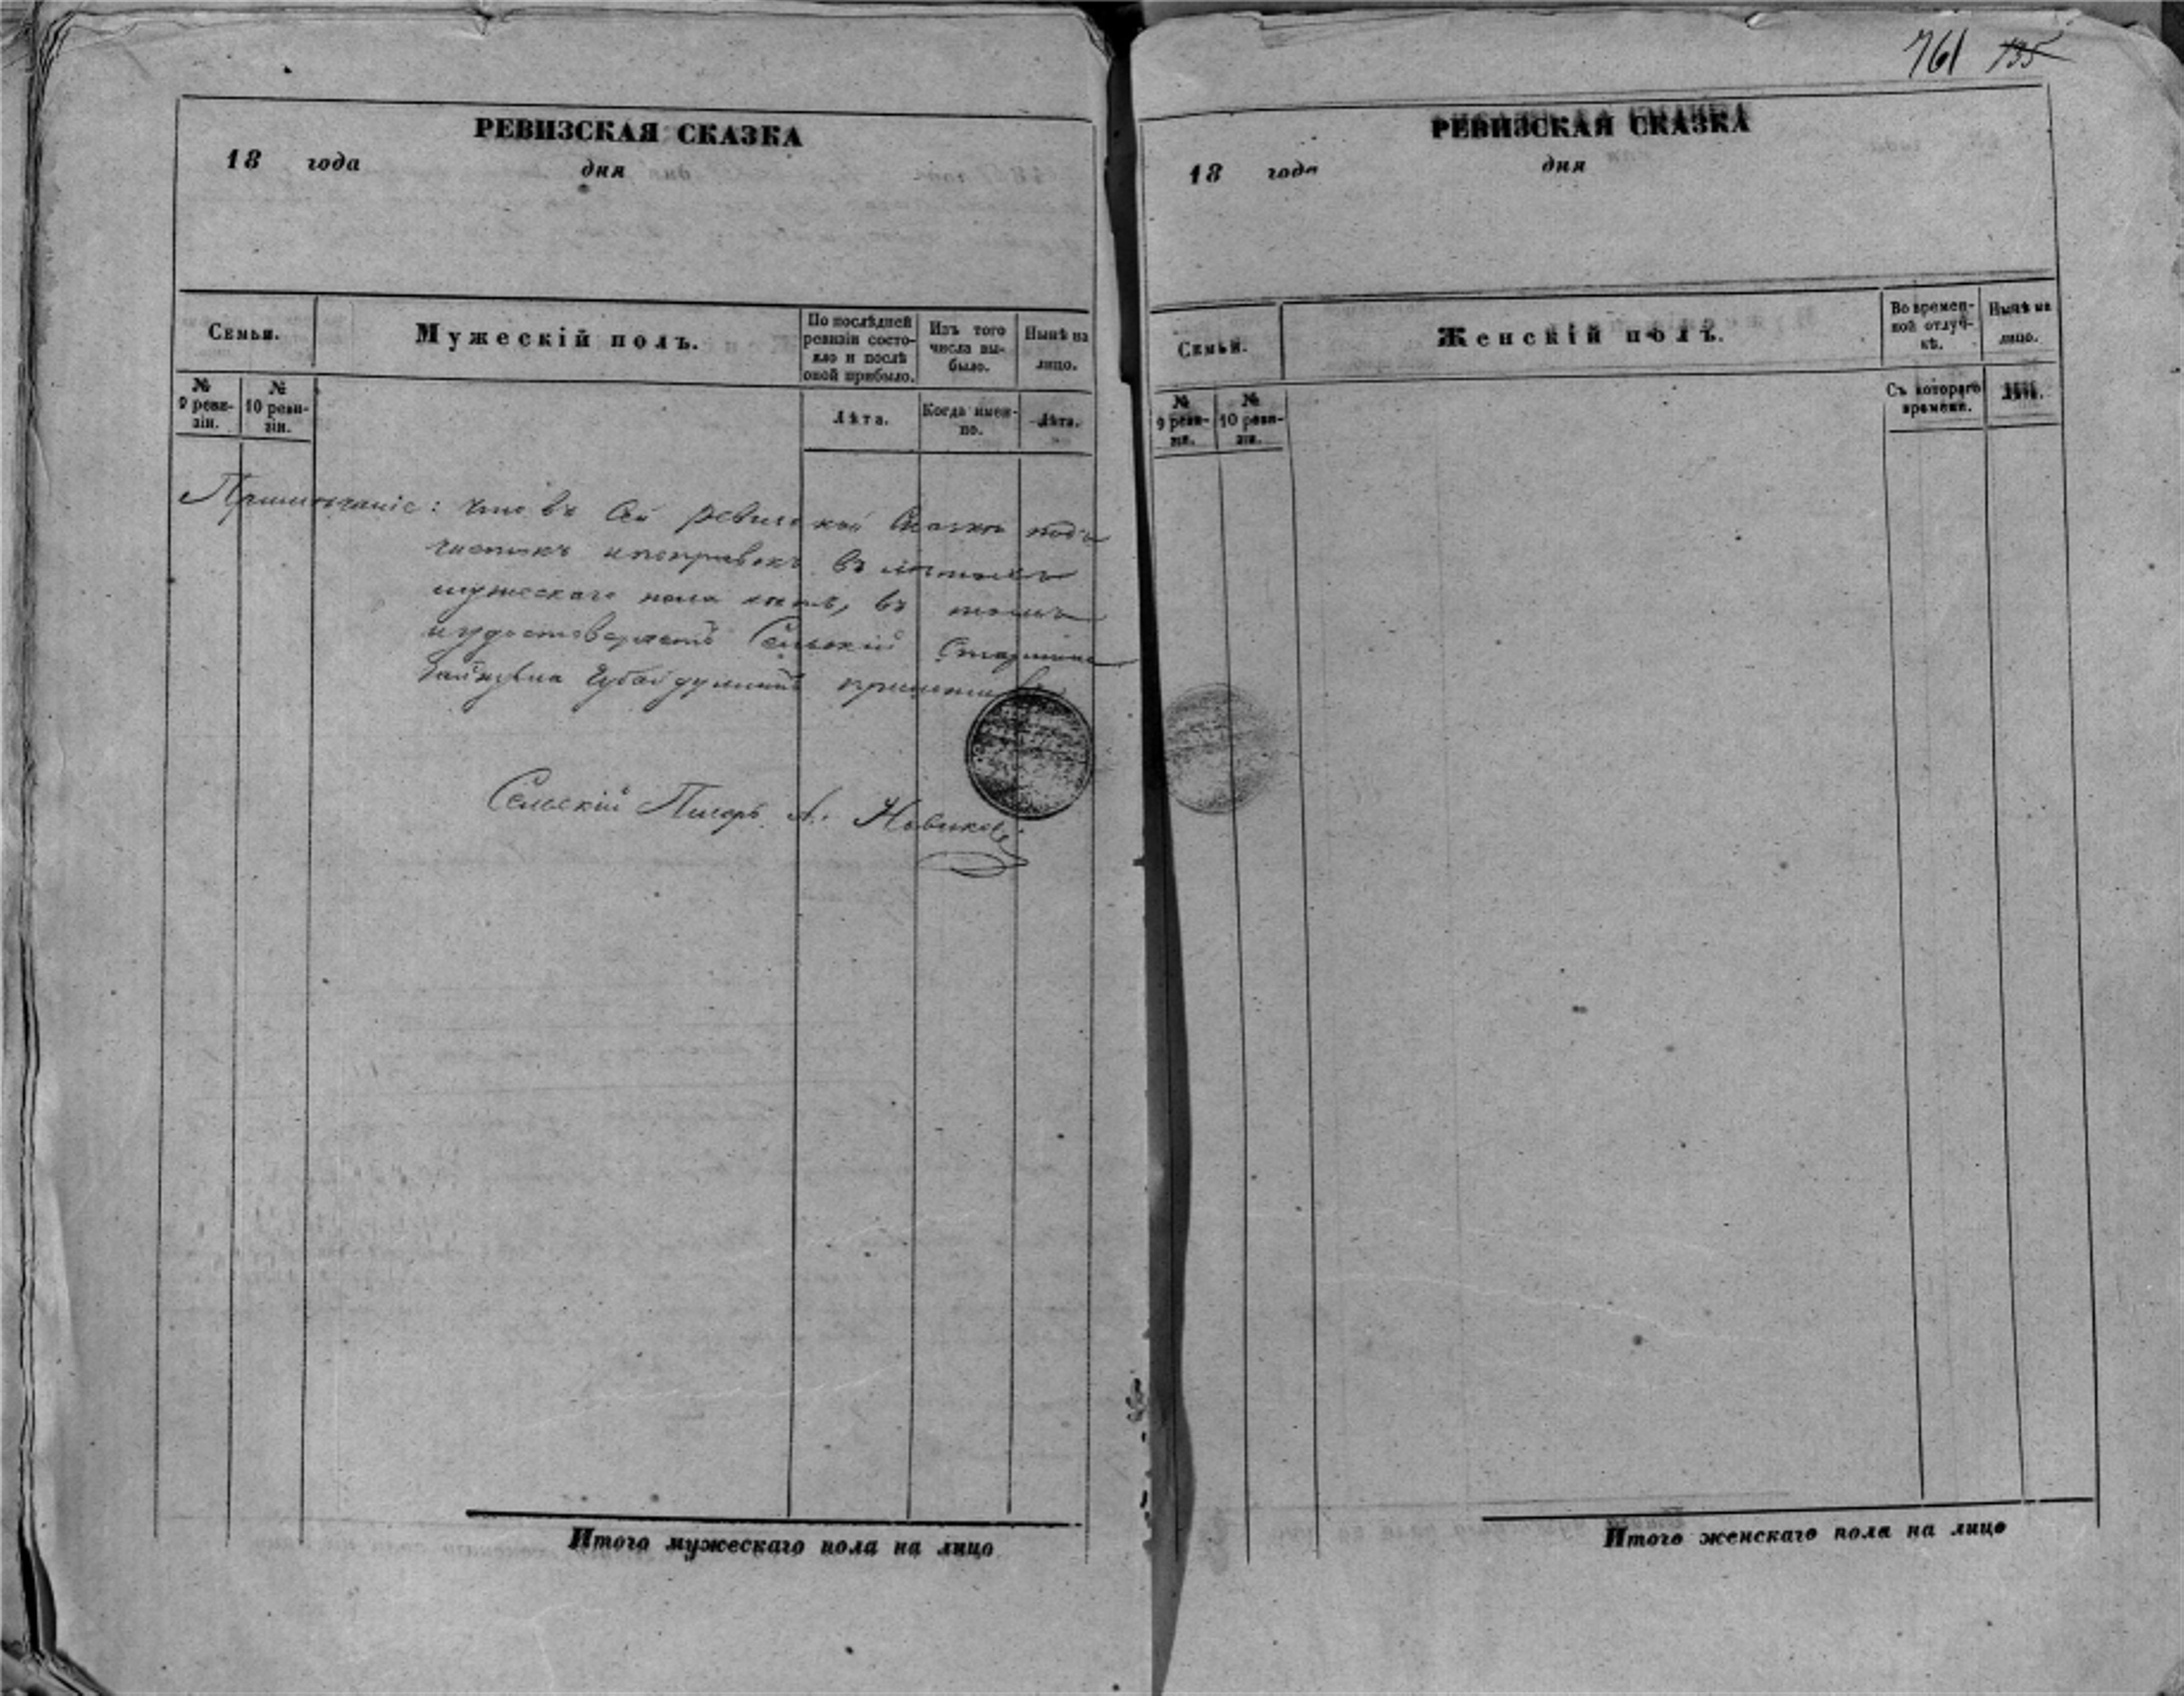 761 135
РЕВИЗСКАЯ СКАЗКА
18 года дня
Семьи.
Мужескій полъ.
По послѣдней ревизіи состо-
яло и послѣ
оной прибыло.
Изъ того
числа вы-
было.
Нынѣ на
лицо.
№
9 реви-
зіи.
№
10 реви-
зіи.
Лѣта.
Когда имен-
но.
Лѣта.
Примѣчаніе: что въ сей ревизской сказкѣ подъ
чистокъ и поправокъ въ лѣтахъ
мужескаго пола въ томъ
и удостовѣряетъ Сельскій Старшина
Губайдуллинъ
Сельскій Писарь А. Новиковъ
Итого мужескаго пола на лицо
РЕВИЗСКАЯ СКАЗКА
18 года дня
Семьи.
Женскій полъ.
Во времен-
ной отлуч-
кѣ.
Нынѣ на
лицо.
№
9 реви-
зіи.
№
10 реви-
зіи.
Съ котораго
времени.
Лѣта.
Итого женскаго пола на лицо